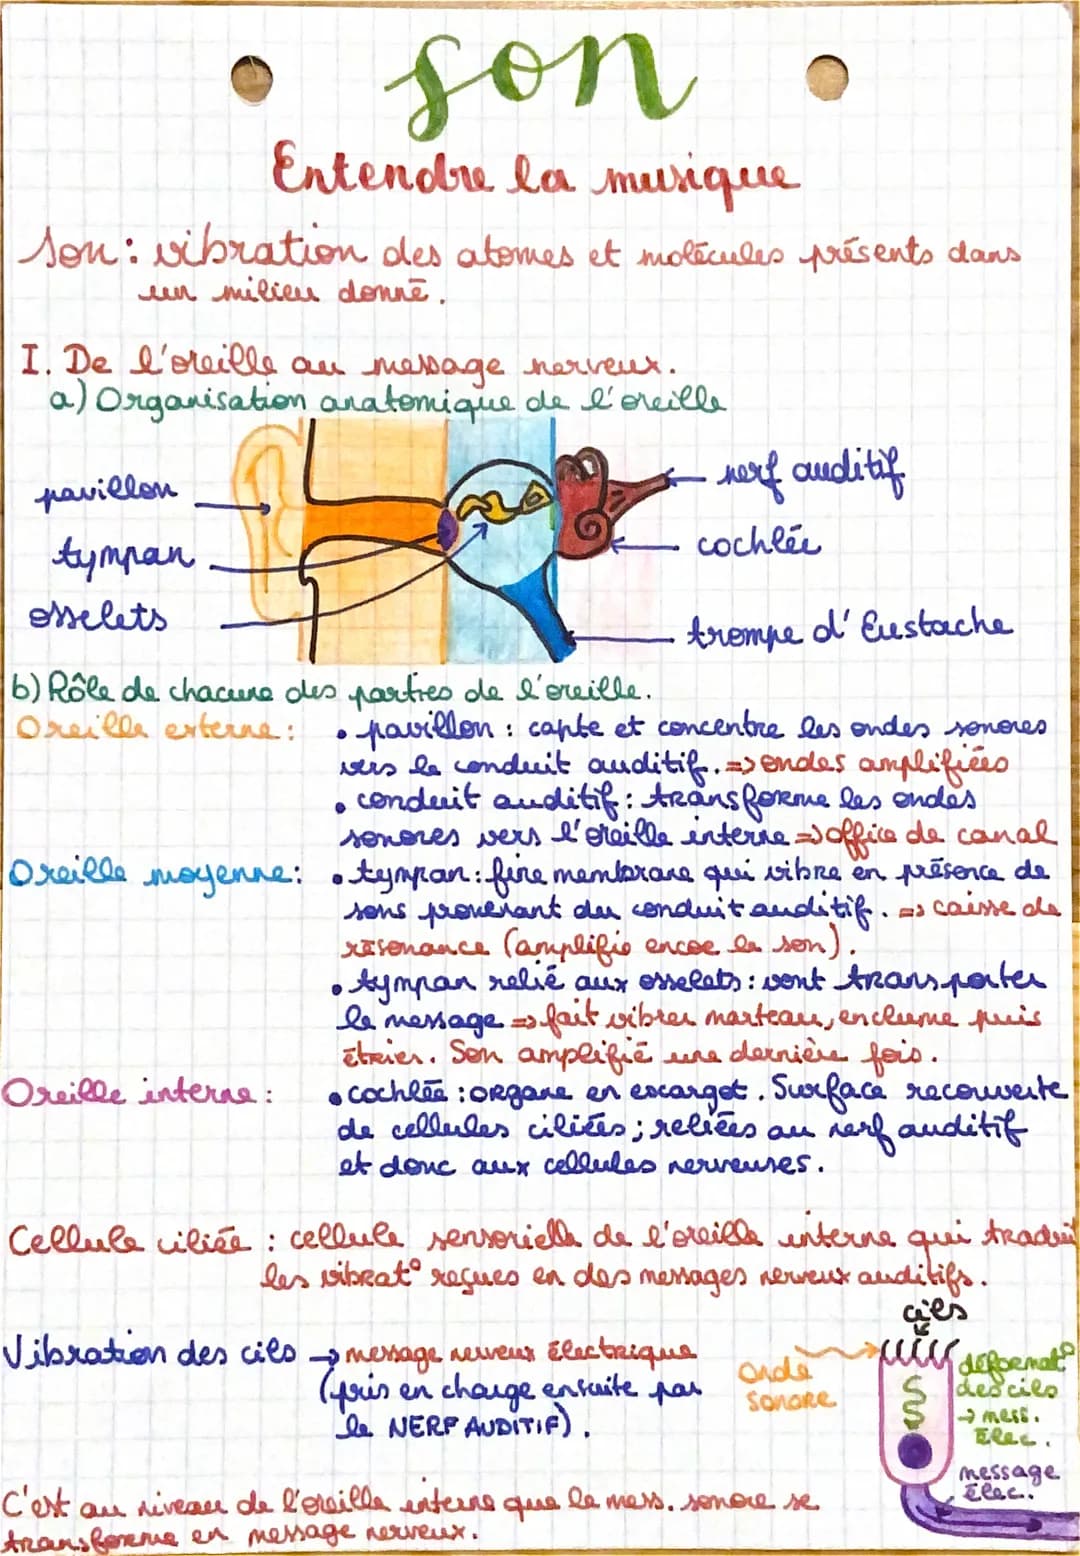 son
Entendre la musique
Son : vibration des atomes et molécules présents dans
un milieu donné.
I. De l'oreille au message nerveux.
a) Organisation anatomique de l'oreille
pavillon
tympan
osselets
nerf auditif
cochlée
trompe d'Eustache
b) Rôle de chacune des parties de l'oreille.
Oreille externe : • pavillon : capte et concentre les ondes sonores
vers le conduit auditif. => ondes amplifiées
• conduit auditif : transforme les ondes
sonores vers l'oreille interne => office de canal
Oreille moyenne : • tympan : fine membrane qui vibre en présence de
sons provenant du conduit auditif. => caisse de
résonance (amplifie encoe le son).
• tympan relié aux osselets : vont transporter
le message => fait vibrer marteau, enclume puis
étrier. Son amplifié une dernière fois.
Oreille interne : • cochlée : organe en escargot. Surface recouverte
de cellules ciliées ; reliées au nerf auditif
et donc aux cellules nerveuses.
Cellule ciliée : cellule sensorielle de l'oreille interne qui traduit
les vibrat° reçues en des messages nerveux auditifs.
cils
Vibration des cils → message nerveux électrique
(pris en charge ensuite par
le NERF AUDITIF).
Onde
sonore
déformat°
des cils
→ mess.
élec.
message
élec.
C'est au niveau de l'oreille interne que le mess. sonore se
transforme en message nerveux.